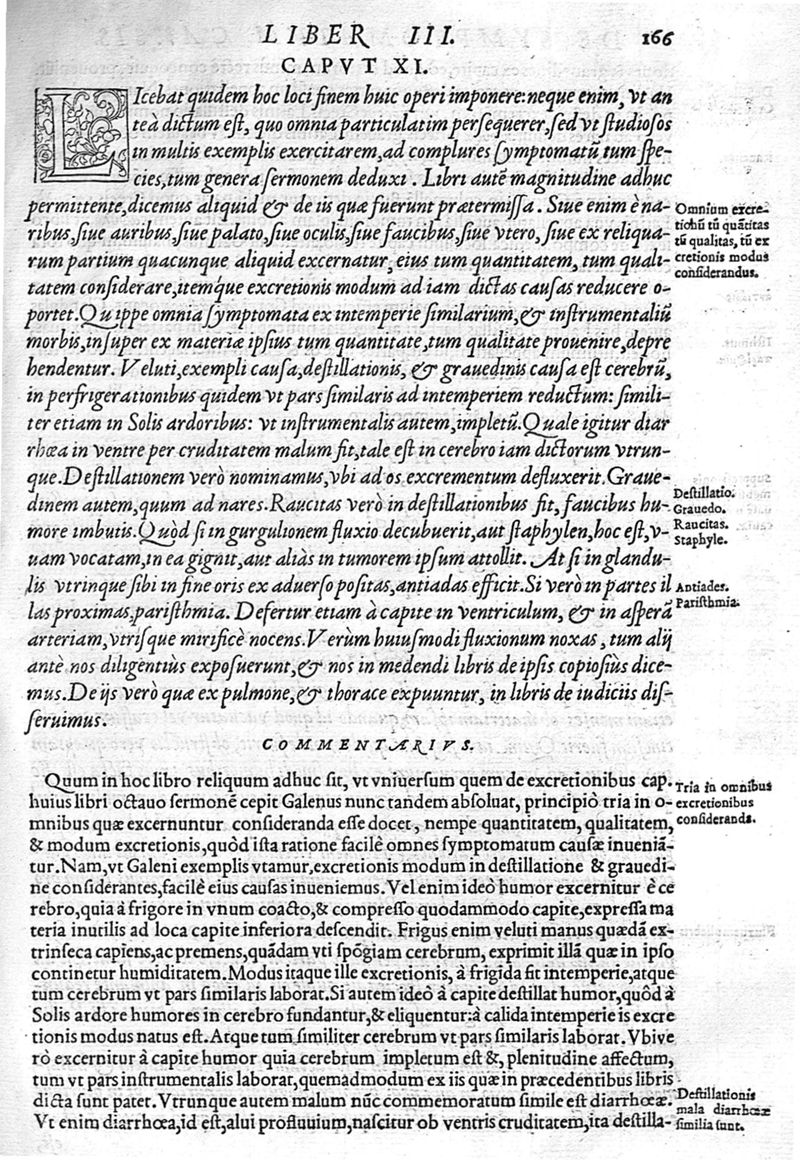 LIBER III.
166
CAPVT XI.
LIcebat quidem hoc loci finem huic operi imponere: neque enim, vt an
teà dictum est, quo omnia particulatim persequerer, sed vt studiosos
in multis exemplis exercitarem, ad complures symptomatũ tum spe-
cies, tum genera sermonem deduxi. Libri autẽ magnitudine adhuc
permittente, dicemus aliquid & de iis quæ fuerunt prætermissa. Siue enim è na-
ribus, siue auribus, siue palato, siue oculis, siue faucibus, siue vtero, siue ex reliqua-
rum partium quacunque aliquid excernatur, eius tum quantitatem, tum quali-
tatem considerare, itemq́ue excretionis modum ad iam dictas causas reducere o-
portet. Quippe omnia symptomata ex intemperie similarium, & instrumentaliũ
morbis, insuper ex materiæ ipsius tum quantitate, tum qualitate prouenire, depre
hendentur. Veluti, exempli causa, destillationis, & grauedinis causa est cerebrũ,
in perfrigerationibus quidem vt pars similaris ad intemperiem reductum: simili-
ter etiam in Solis ardoribus: vt instrumentalis autem, impletũ. Quale igitur diar
rhœa in ventre per cruditatem malum fit, tale est in cerebro iam dictorum vtrun-
que. Destillationem verò nominamus, vbi ad os excrementum defluxerit. Graue-
dinem autem, quum ad nares. Raucitas verò in destillationibus fit, faucibus hu-
more imbutis. Quòd si in gurgulionem fluxio decubuerit, aut staphylen, hoc est, v-
uam vocatam, in ea gignit, aut aliàs in tumorem ipsum attollit. At si in glandu-
lis vtrinque sibi in fine oris ex aduerso positas, antiadas efficit. Si verò in partes il
las proximas, paristhmia. Defertur etiam à capite in ventriculum, & in asperã
arteriam, vtrisque mirificè nocens. Verùm huiusmodi fluxionum noxas, tum alij
antè nos diligentiùs exposuerunt, & nos in medendi libris de ipsis copiosiùs dice-
mus. De ijs verò quæ ex pulmone, & thorace expuuntur, in libris de iudiciis dis-
seruimus.
Omnium excre-
tionũ tũ quãtitas
tũ qualitas, tũ ex
cretionis modus
considerandus.
Destillatio.
Grauedo.
Raucitas.
Staphyle.
Antiades.
Paristhmia.
COMMENTARIVS.
Quum in hoc libro reliquum adhuc sit, vt vniuersum quem de excretionibus cap.
huius libri octauo sermonẽ cepit Galenus nunc tandem absoluat, principiò tria in o-
mnibus quæ excernuntur consideranda esse docet, nempe quantitatem, qualitatem,
& modum excretionis, quòd ista ratione facilè omnes symptomatum causæ inueniã-
tur. Nam, vt Galeni exemplis vtamur, excretionis modum in destillatione & grauedi-
ne considerantes, facilè eius causas inueniemus. Vel enim ideò humor excernitur è ce
rebro, quia à frigore in vnum coacto, & compresso quodammodo capite, expressa ma
teria inutilis ad loca capite inferiora descendit. Frigus enim veluti manus quædã ex-
trinseca capiens, ac premens, quãdam vti spõgiam cerebrum, exprimit illã quæ in ipso
continetur humiditatem. Modus itaque ille excretionis, à frigida fit intemperie, atque
tum cerebrum vt pars similaris laborat. Si autem ideò à capite destillat humor, quôd à
Solis ardore humores in cerebro fundantur, & eliquentur: à calida intemperie is excre
tionis modus natus est. Atque tum similiter cerebrum vt pars similaris laborat. Vbi ve
rò excernitur à capite humor quia cerebrum impletum est &, plenitudine affectum,
tum vt pars instrumentalis laborat, quemadmodum ex iis quæ in præcedentibus libris
dicta sunt patet. Vtrunque autem malum nũc commemoratum simile est diarrhœæ.
Vt enim diarrhœa, id est, alui profluuium, nascitur ob ventris cruditatem, ita destilla-
Tria in omnibus
excretionibus
consideranda.
Destillationis
mala diarrhœæ
similia sunt.